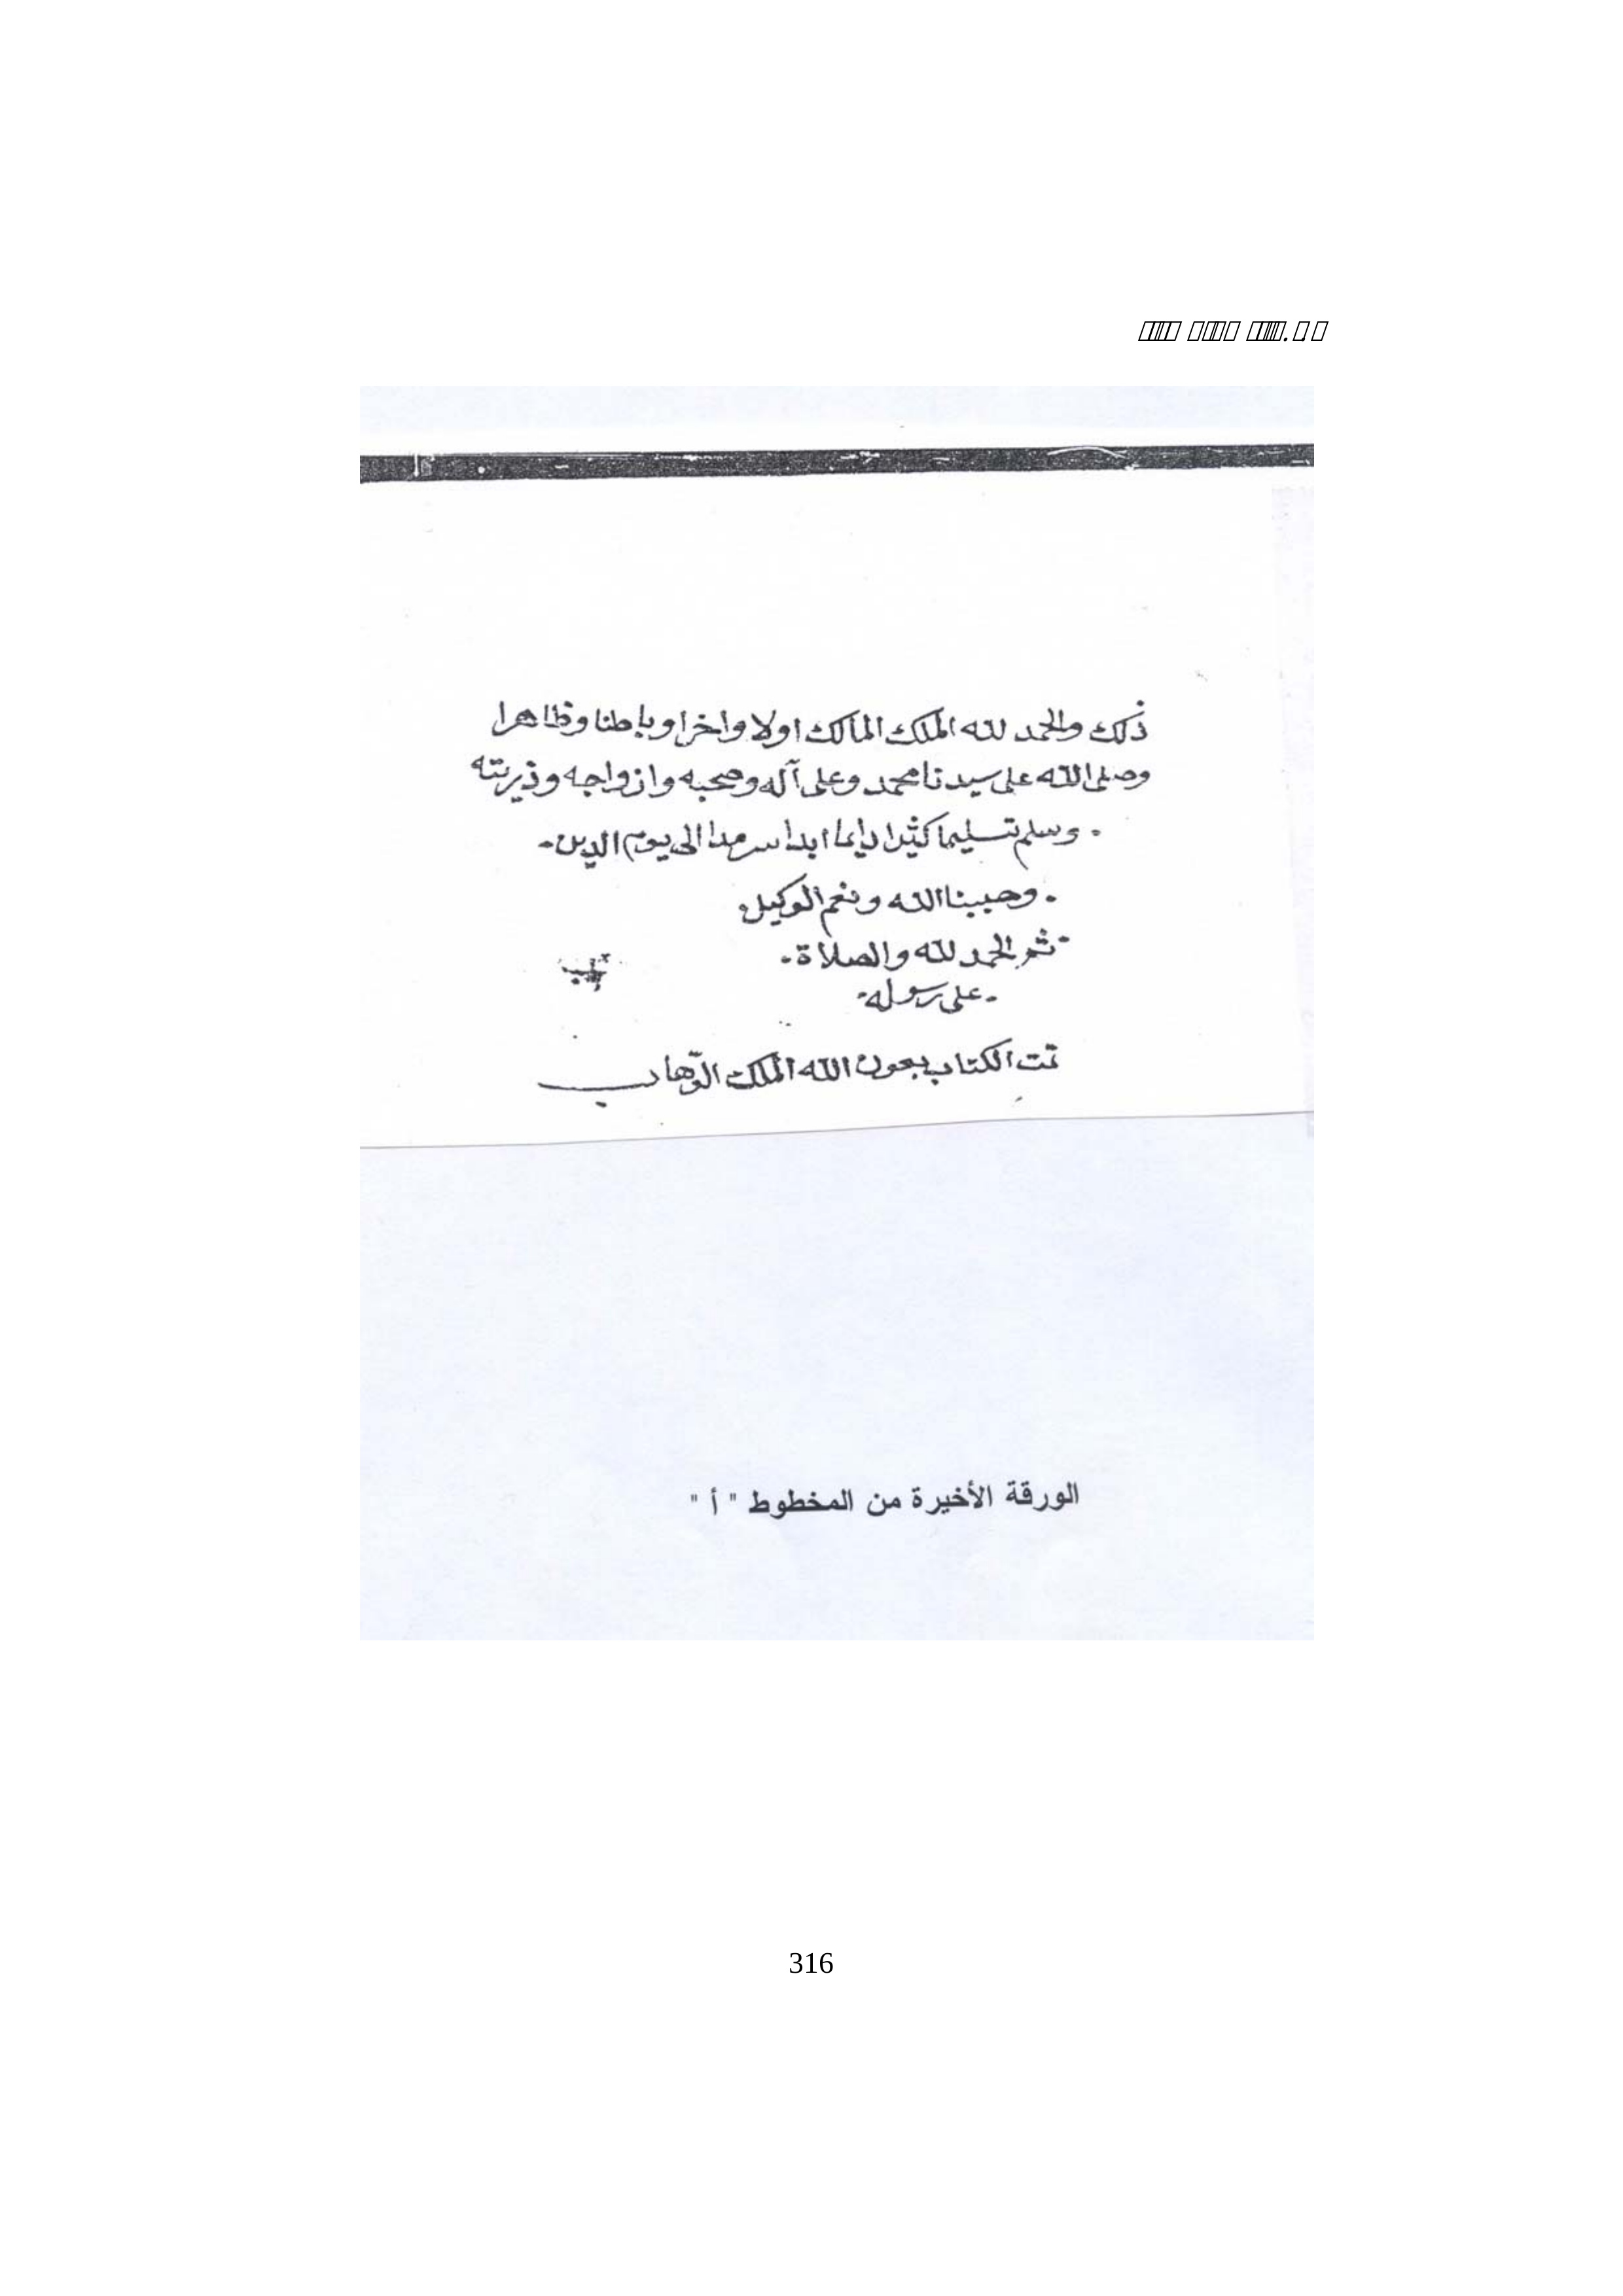 ذلك والحمد لله الملك المالك اولا واخرا وباطنا وظاهرا
وصلى الله على سيدنا محمد وعلى آله وصحبه وازواجه وذريته
وسلم تسليما كثيرا دايما ابدا سرمدا الى يوم الدين
وحسبنا الله ونعم الوكيل
ثم الحمد لله والصلاة
على رسوله
تمت الكتاب بعون الله الملك الوهاب
الورقة الأخيرة من المخطوط " أ "
316